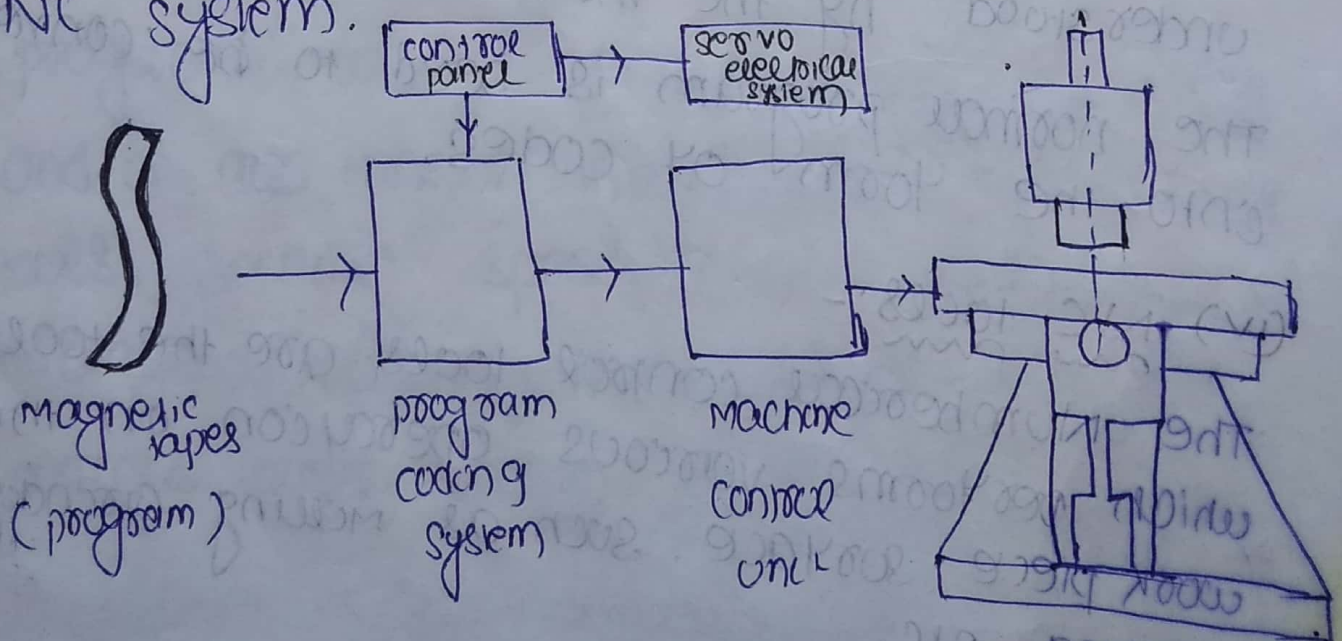 NC system.
control
panel
servo
electrical
system
magnetic
tapes
(program)
program
coding
system
machine
control
unit